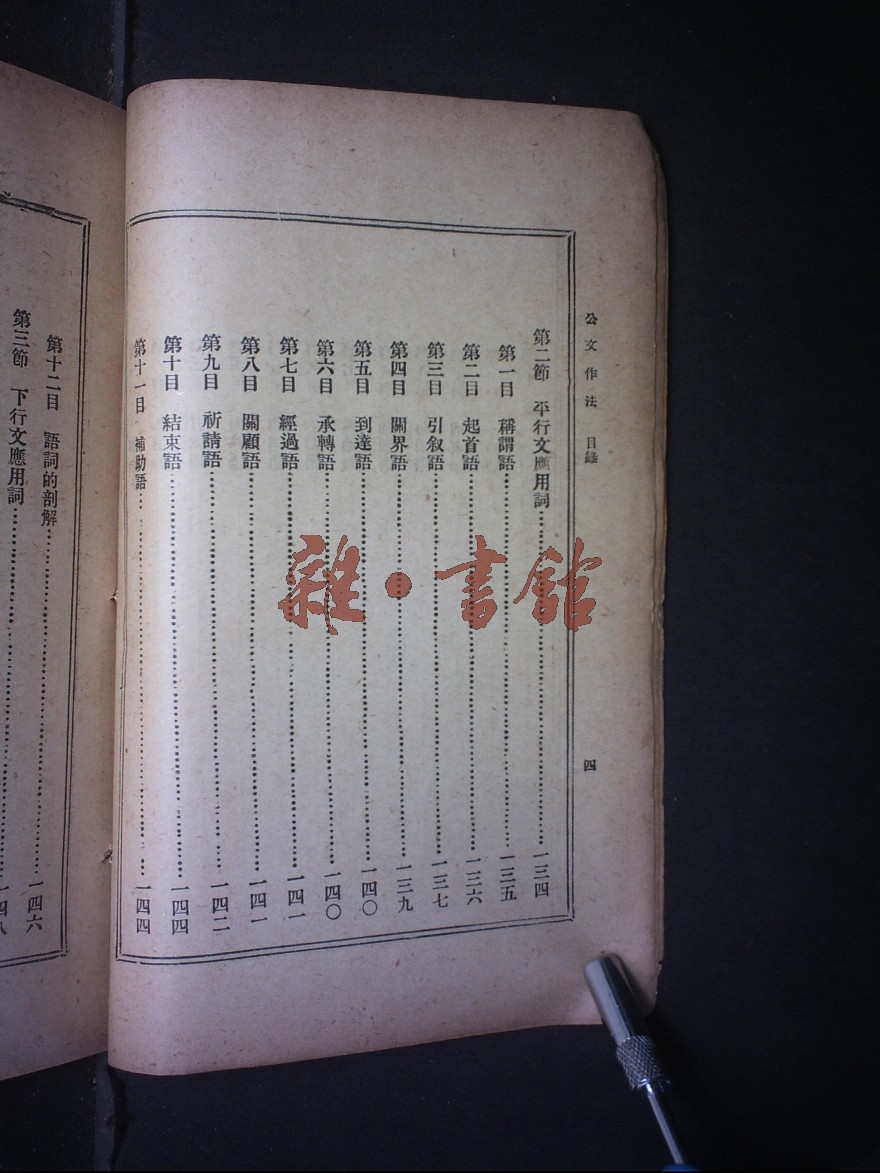 公文作法 目錄
四
第二節 平行文應用詞……一三四
第一目 稱謂語……一三五
第二目 起首語……一三六
第三目 引叙語……一三七
第四目 關界語……一三九
第五目 到達語……一四〇
第六目 承轉語……一四〇
第七目 經過語……一四一
第八目 關顧語……一四一
第九目 祈請語……一四二
第十目 結束語……一四四
第十一目 補助語……一四四
第十二目 語詞的剖解……一四六
第三節 下行文應用詞……一四八
雜·書館